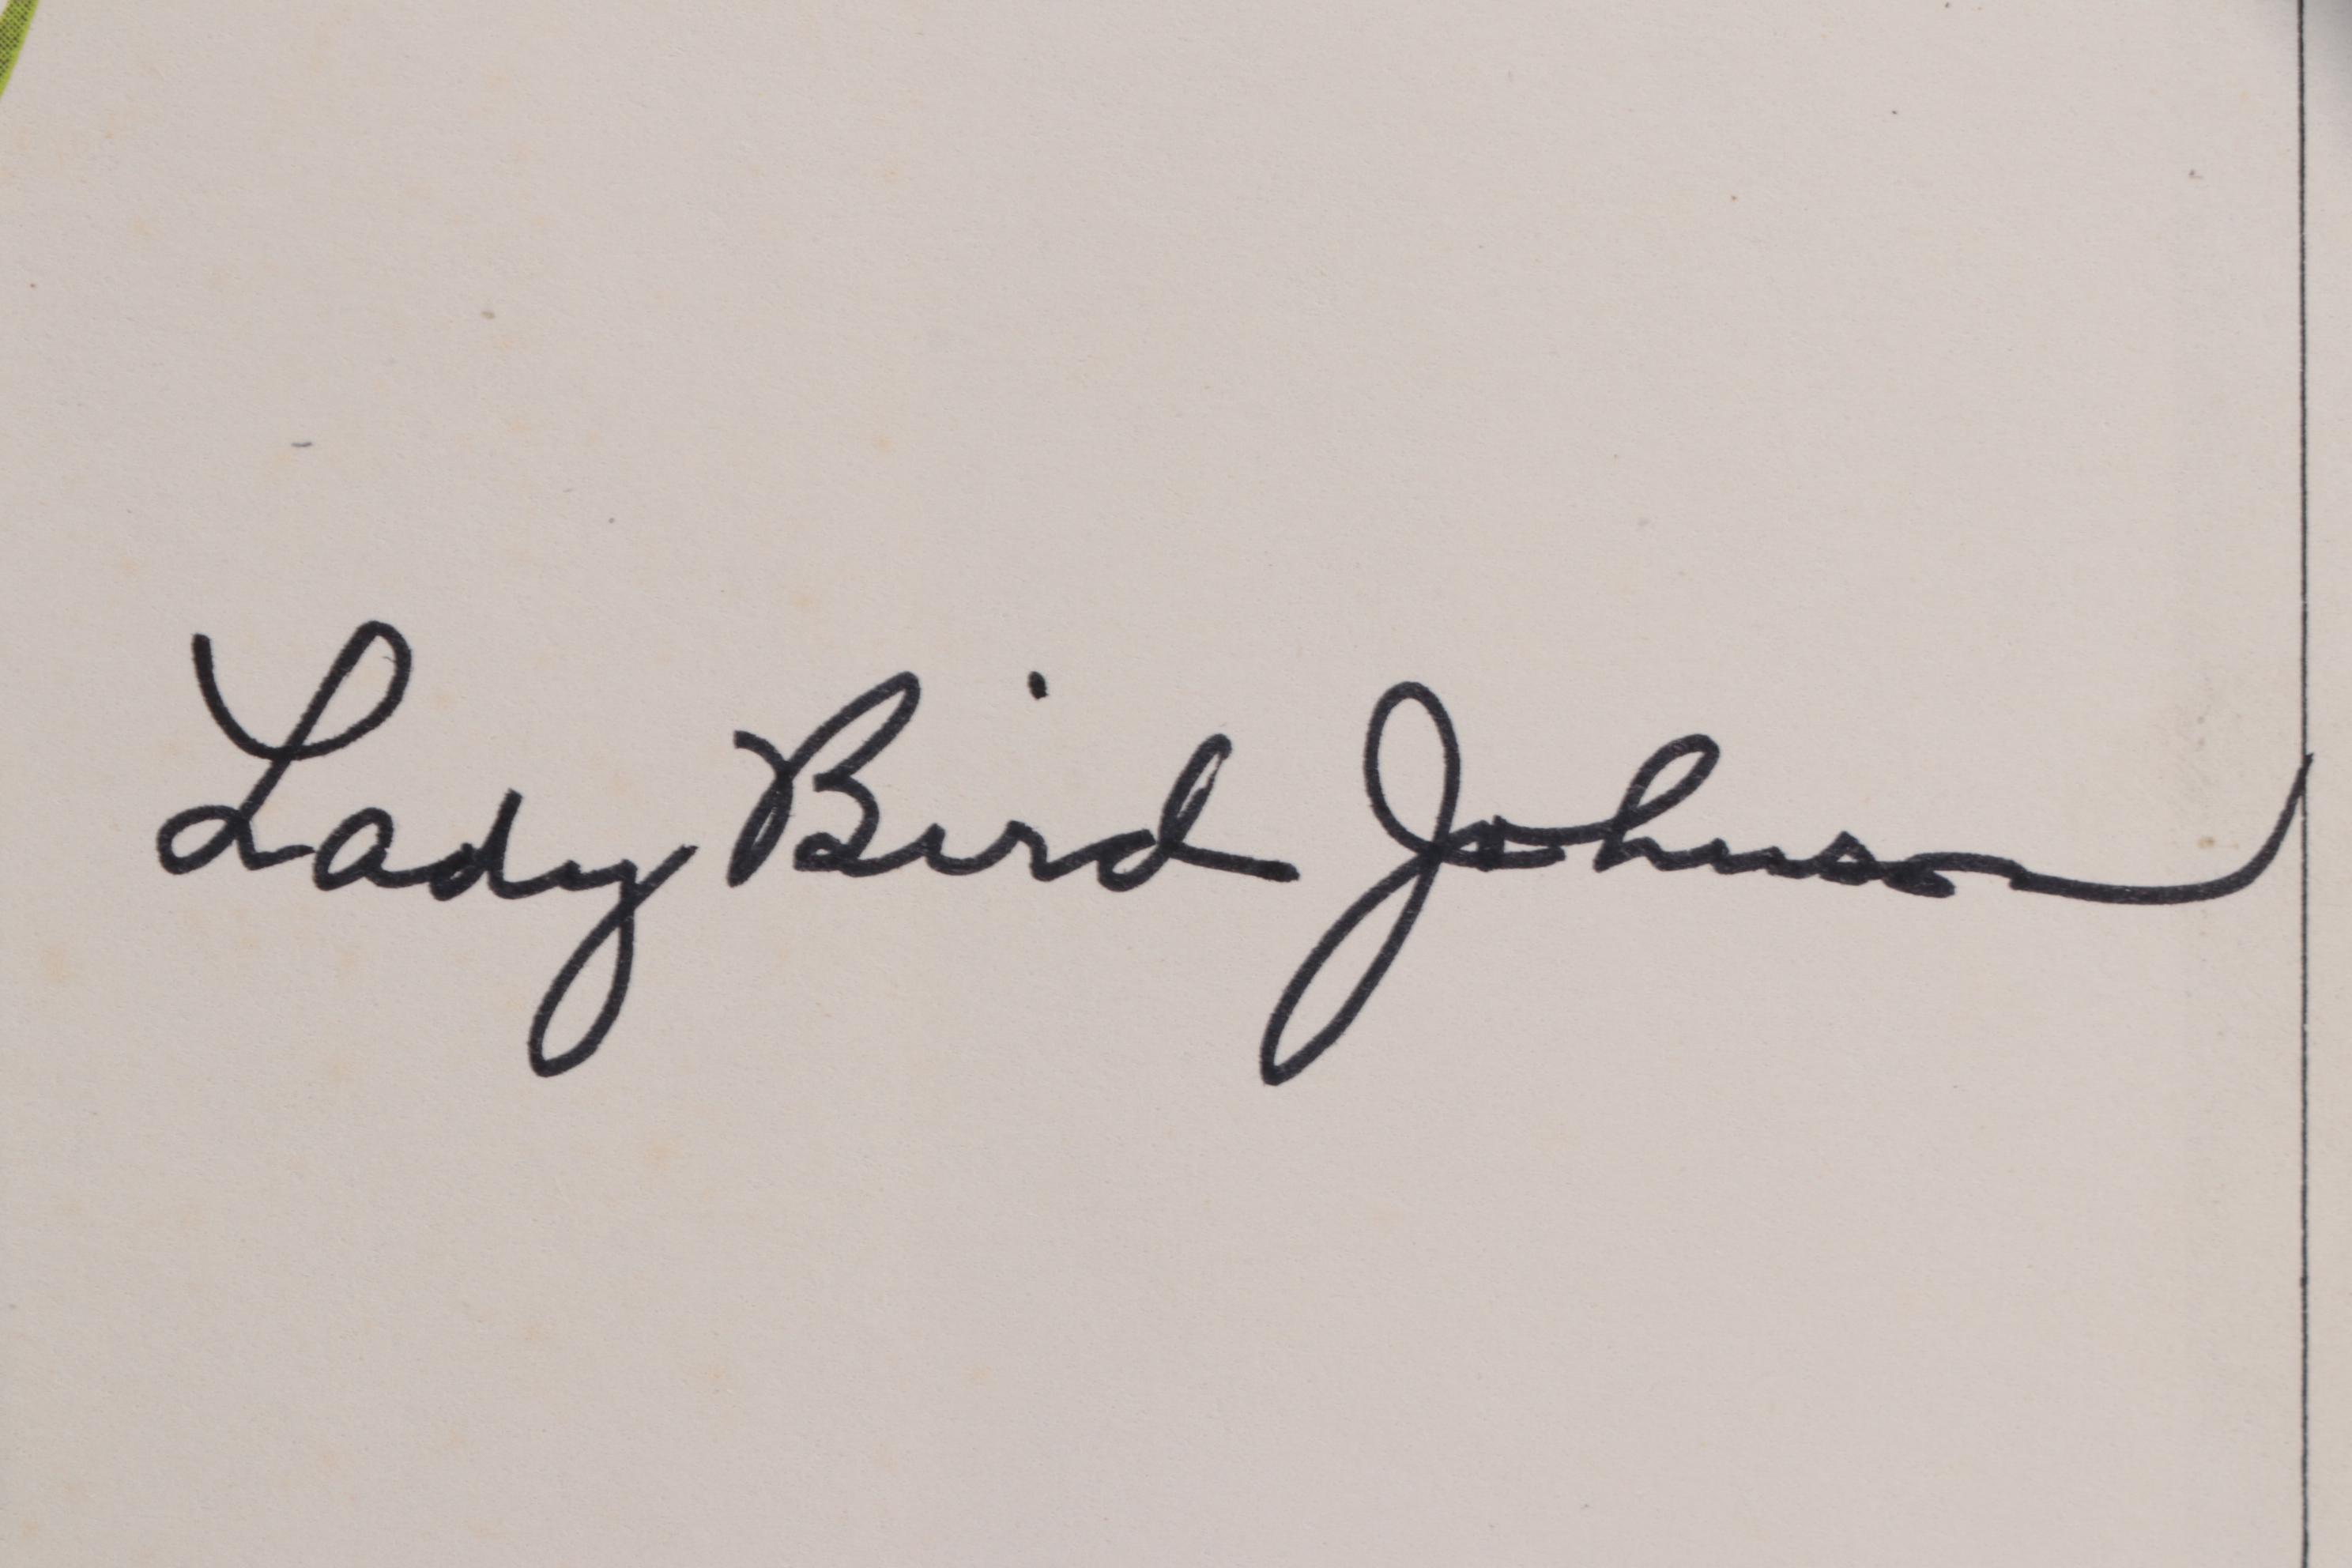 Lady Bird Johnson